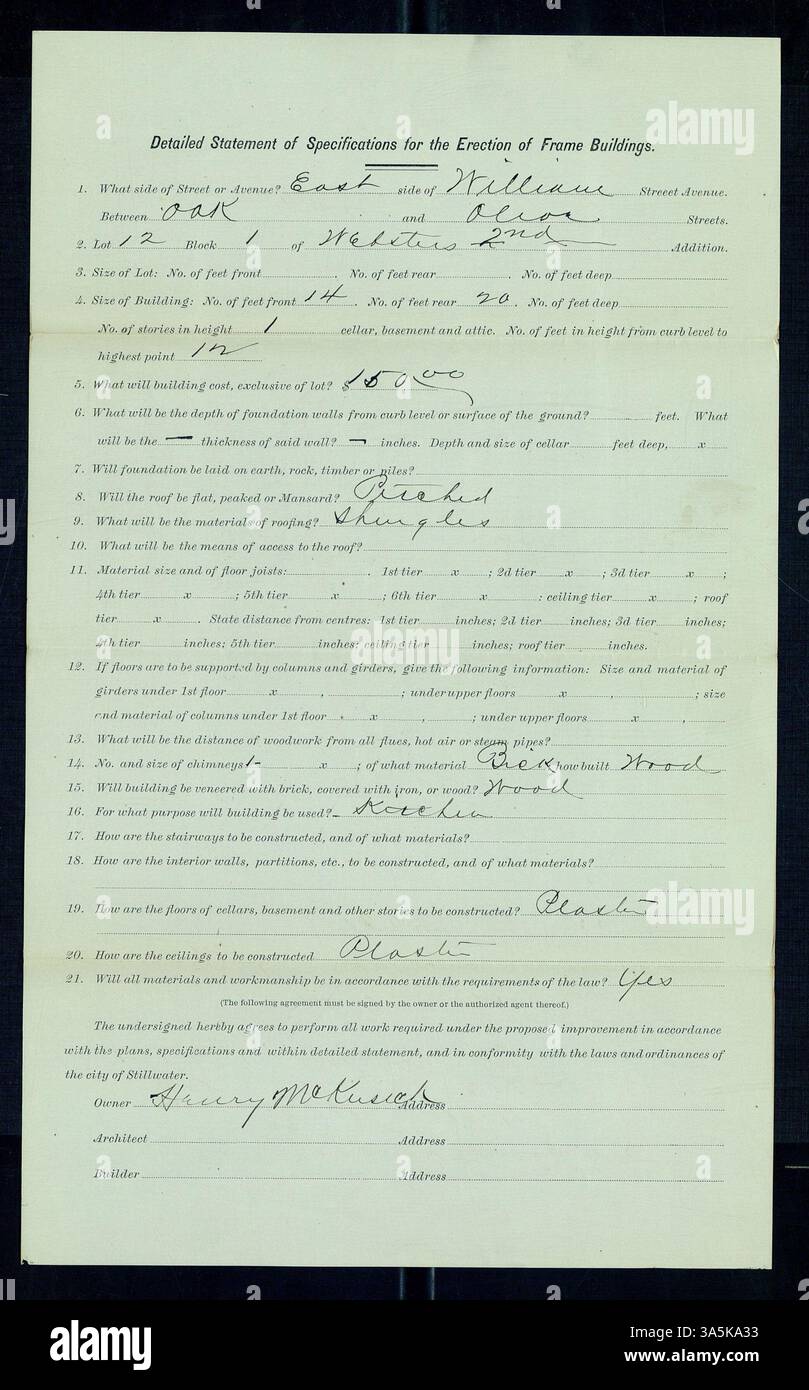 Detailed Statement of Specifications for the Erection of Frame Buildings.
1. What side of Street or Avenue? East side of William Streeet Avenue.
Between Oak and Olive Streets.
2. Lot 12 Block 1 of Websters 2nd Addition.
3. Size of Lot: No. of feet front . No. of feet rear . No. of feet deep
4. Size of Building: No. of feet front 14 . No. of feet rear 20 . No. of feet deep
No. of stories in height 1 cellar, basement and attic. No. of feet in height from curb level to
highest point 12
5. What will building cost, exclusive of lot? $150.00
6. What will be the depth of foundation walls from curb level or surface of the ground? feet. What
will be the — thickness of said wall? — inches. Depth and size of cellar feet deep, x
7. Will foundation be laid on earth, rock, timber or piles?
8. Will the roof be flat, peaked or Mansard? Pitched
9. What will be the materials of roofing? Shingles
10. What will be the means of access to the roof?
11. Material size and of floor joists: . 1st tier x ; 2d tier x ; 3d tier x ;
4th tier x ; 5th tier x ; 6th tier x : ceiling tier x ; roof
tier x . State distance from centres: 1st tier inches; 2d tier inches; 3d tier inches;
4th tier inches; 5th tier inches: ceiling tier inches; roof tier inches.
12. If floors are to be supported by columns and girders, give the following information: Size and material of
girders under 1st floor x , ; under upper floors x , ; size
and material of columns under 1st floor x , ; under upper floors x ,
13. What will be the distance of woodwork from all flues, hot air or steam pipes?
14. No. and size of chimneys 1- x ; of what material Brick how built Wood
15. Will building be veneered with brick, covered with iron, or wood? Wood
16. For what purpose will building be used? Kitchen
17. How are the stairways to be constructed, and of what materials?
18. How are the interior walls, partitions, etc., to be constructed, and of what materials?
19. How are the floors of cellars, basement and other stories to be constructed? Plaster
20. How are the ceilings to be constructed Plaster
21. Will all materials and workmanship be in accordance with the requirements of the law? Yes
(The following agreement must be signed by the owner or the authorized agent thereof.)
The undersigned hereby agrees to perform all work required under the proposed improvement in accordance
with the plans, specifications and within detailed statement, and in conformity with the laws and ordinances of
the city of Stillwater.
Owner Henry McKusick Address
Architect Address
Builder Address
alamy
Image ID: A5KA33
www.alamy.com